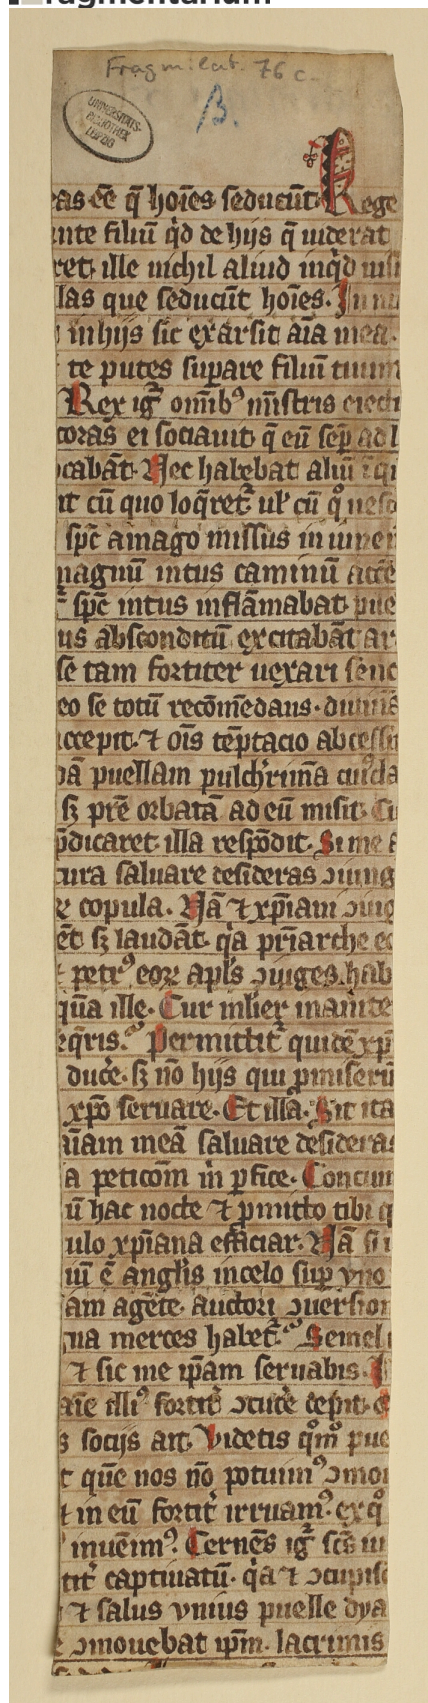 Fragm. lat. 76 c.
UNIVERSITÄTS-
BIBLIOTHEK
LEIPZIG
β.
ras eē q̄ hoīes seducūt. Rege
ante filiū q̇d de hijs q̄ uiderat
ret. ille nichil aliud inq̇d nisi
las que seducūt hoīes. In nu
in hijs sic exarsit aīa mea.
te putes supare filiū tuum
Rex ig̃ omīb⁹ mīstris eiecti
coras ei sociauit q̄ eū sep̄ ad
ocabāt. Nec habebat aliū
it cū quo loq̄ret̃ ul' cū q̊ uesc
sp̄c a mago missus in iuuen
magnū intus caminū acce
sp̄c intus inflāmabat. pue
us absconditū excitabāt ar
se tam fortiter uexari senc
eo se totū recōmēdans. diuina
accepit. ⁊ oīs tēptacio abcessit
dā puellam pulchrimā cuiuda
sꝫ prē orbatā ad eū misit. Cu
p̄dicaret. illa respōdit. Si me
cura saluare desideras ɔiung
copula. Nā ⁊ xp̄iani ɔiug
ēt sꝫ laudāt. q̇a pr̄iarche
petr⁹ eoꝝ apl's ɔiuges hab
quā ille. Cur mlier inanite
Permittit̃ quidē xp̄
duc̄e. sꝫ nō hijs qui pmiserū
xp̄o seruare. Et illa. Sit ita
aīam meā saluare desideras
a peticōm m̄ ꝑfice. Concum
ū hac nocte ⁊ pmitto tibi q
ulo xp̄iana efficiar. Nā si
iū ē angl'is in celo sup vno
am agēte. auctori ɔuersion
ua merces habet̃. Semel
⁊ sic me ip̄am seruabis.
aīe illi⁹ fortit̃ ɔcut̃e cepit.
s socijs ait. Videtis q̊m pue
t que nos nō potuim⁹ ɔmo
t in eū fortit̃ irruam⁹. ex q̊
inuēim⁹. Cernēs ig̃ sc̄s
tit̃ captiuatū. q̇a ⁊ ɔcupisc
⁊ salus vnius puelle dya
ɔmouebat ip̄m. lacrimis